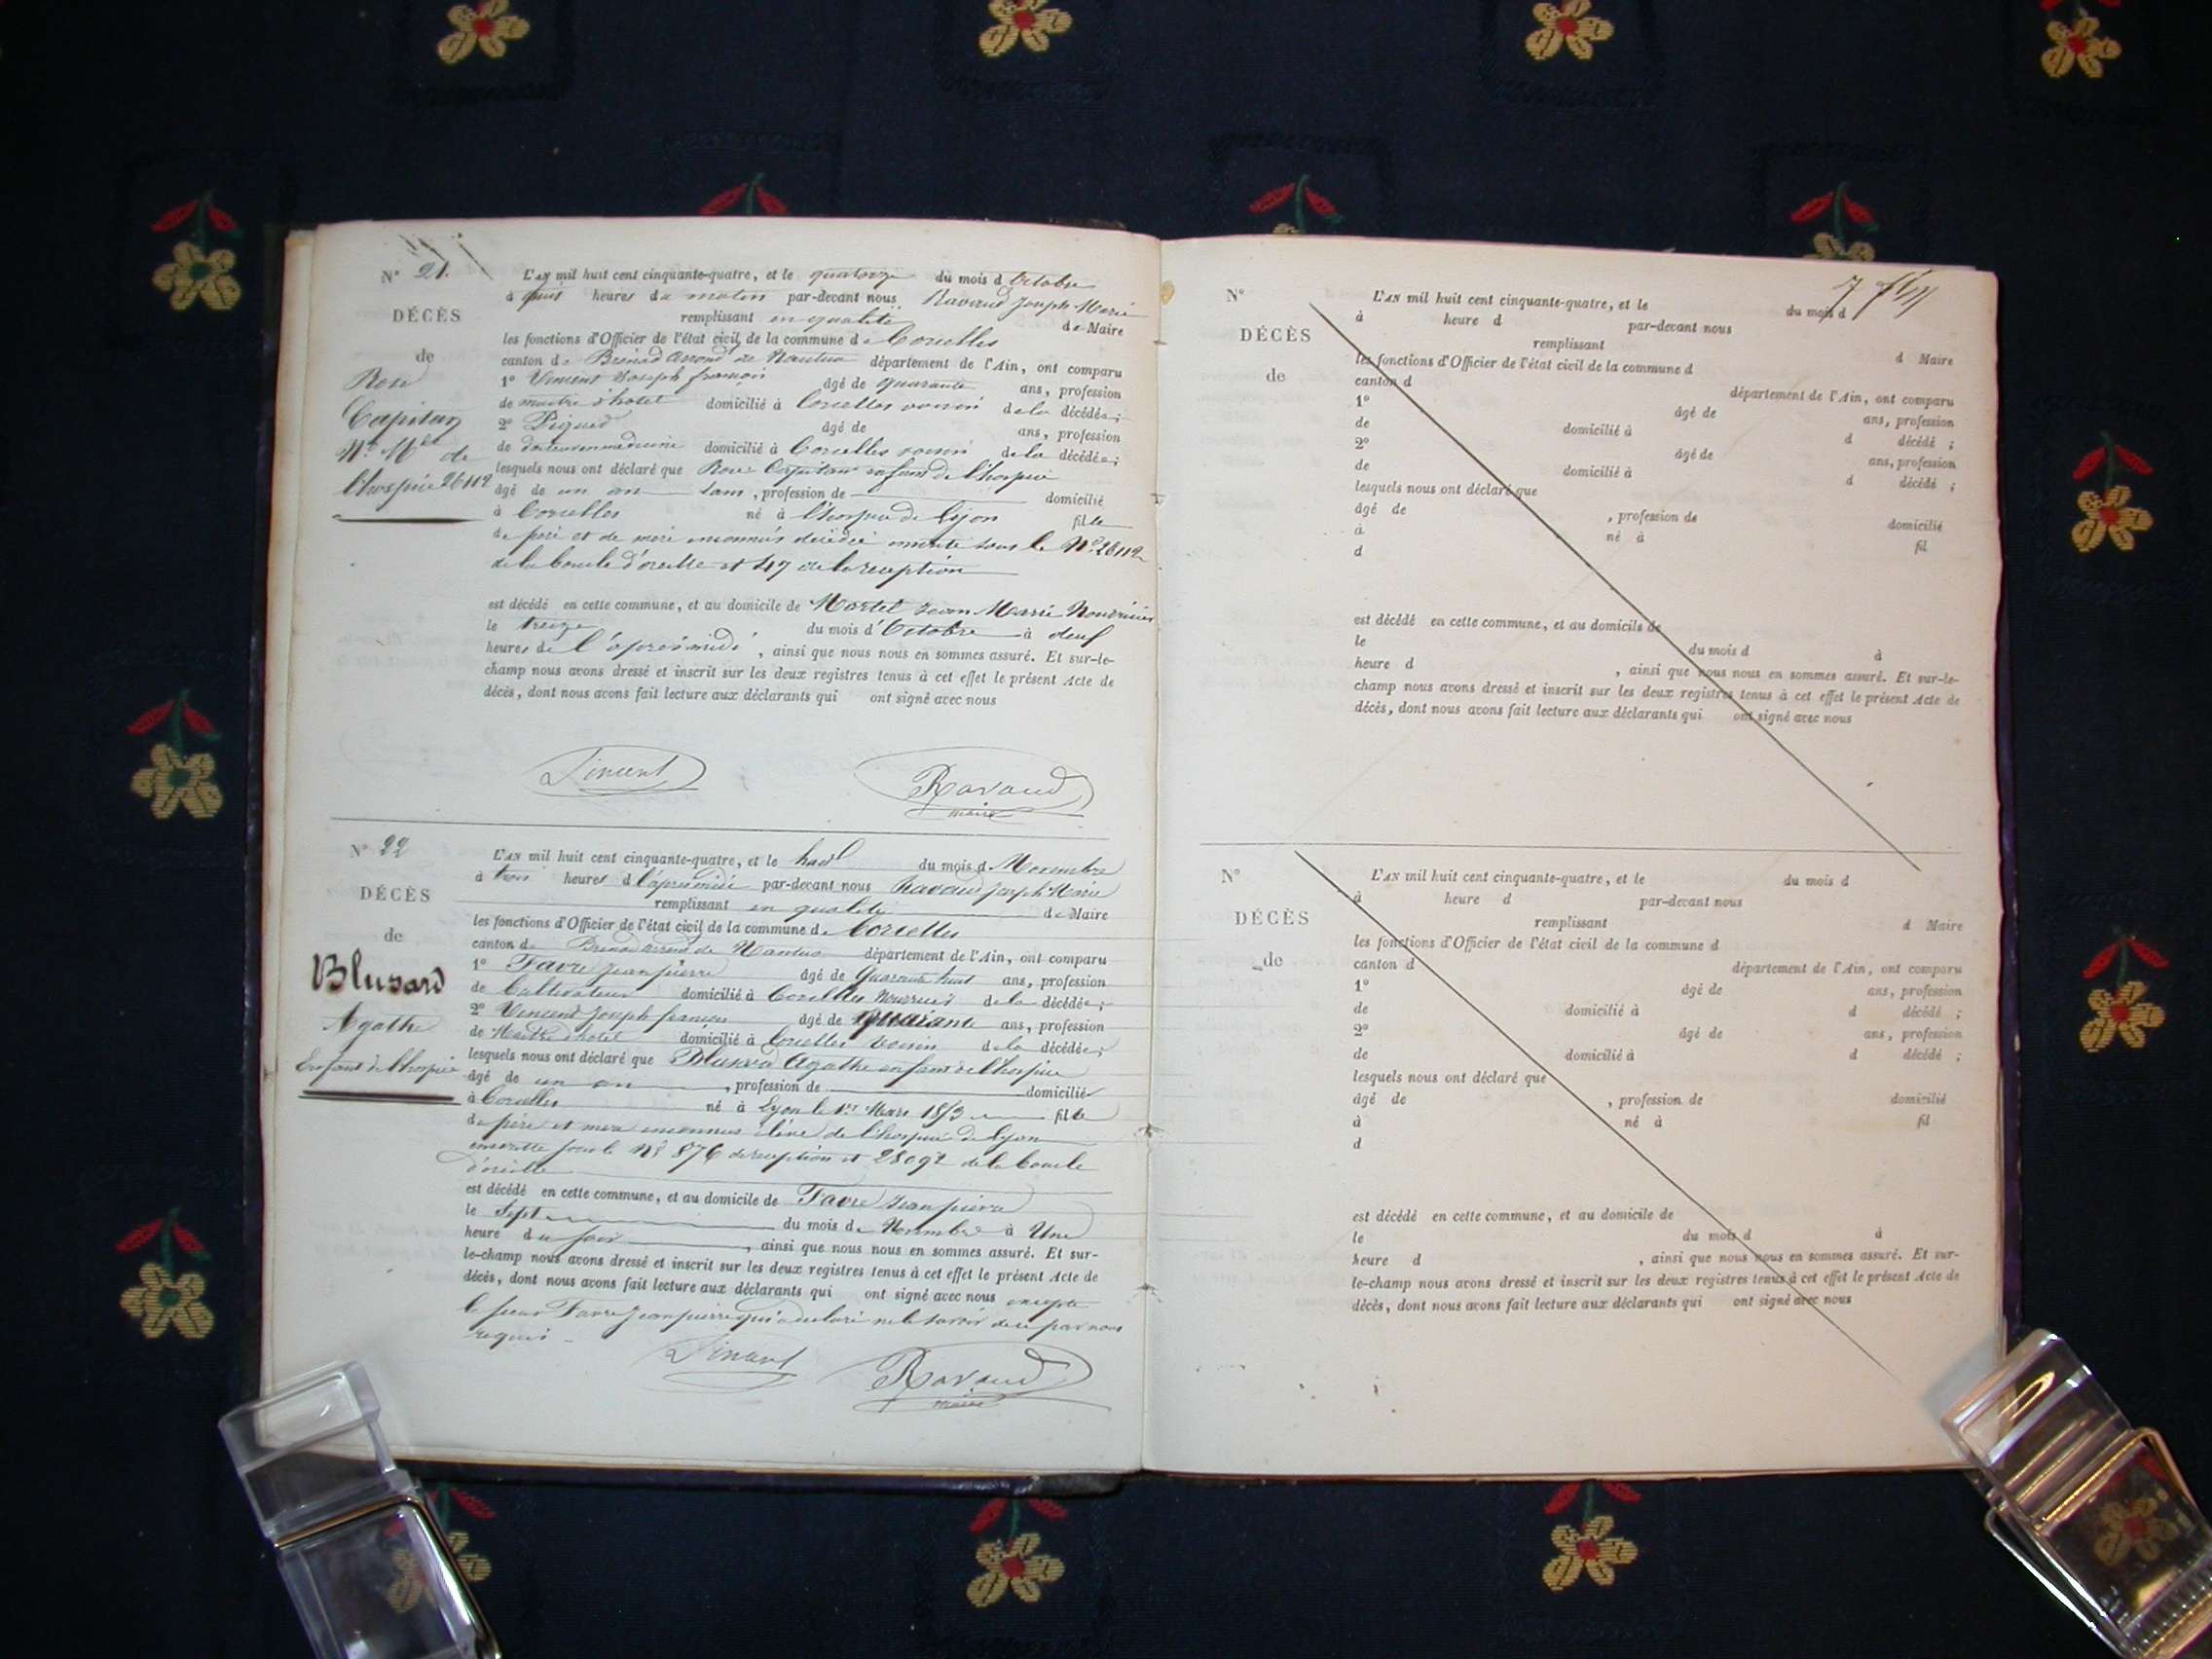 N° 21.
DÉCÈS
de
Rose
Capitan
N° Mle de
l'hospice 26112
L'AN mil huit cent cinquante-quatre, et le quatorze du mois d'Octobre
à heures du matin par-devant nous Ravaud Joseph Marie
remplissant en qualité de Maire
les fonctions d'Officier de l'état civil de la commune de Corcelles
canton de Brénod arrond de Nantua département de l'Ain, ont comparu
1° Vincent Joseph françois âgé de quarante ans, profession
de maitre d'hotel domicilié à Corcelles voisin de la décédée ;
2° Piquet âgé de ans, profession
de docteur en médecine domicilié à Corcelles voisin de la décédée ;
lesquels nous ont déclaré que Rose Capitan enfant de l'hospice
âgé de un an , profession de domicilié
à Corcelles né à l'hospice de Lyon fille
de père et de mère inconnus décédée inscrite sous le N° 26112
de la boucle d'oreille et 447 de la reception
est décédé en cette commune, et au domicile de Martel Jean Marie Nourricier
le treize du mois d'Octobre à
heures de l'après midi , ainsi que nous nous en sommes assuré. Et sur-le-
champ nous avons dressé et inscrit sur les deux registres tenus à cet effet le présent Acte de
décès, dont nous avons fait lecture aux déclarants qui ont signé avec nous
Vincent Ravaud
maire
N° 22
DÉCÈS
de
Blusard
Agathe
Enfant de l'hospice
L'AN mil huit cent cinquante-quatre, et le huit du mois de Novembre
à trois heures de l'après midi par-devant nous Ravaud Joseph Marie
remplissant en qualité de Maire
les fonctions d'Officier de l'état civil de la commune de Corcelles
canton de Brénod arrond de Nantua département de l'Ain, ont comparu
1° Favre Jean pierre âgé de Quarante huit ans, profession
de Cultivateur domicilié à Corcelles Nourricier de la décédée ;
2° Vincent Joseph françois âgé de quarante ans, profession
de Maitre d'hotel domicilié à Corcelles voisin de la décédée ;
lesquels nous ont déclaré que Blusard Agathe enfant de l'hospice
âgé de un an , profession de domicilié
à Corcelles né à Lyon le 1er Mars 1853 fille
de père et mère inconnus élève de l'hospice de Lyon
inscritte sous le N° 876 de reception et 28092 de la boucle
d'oreille
est décédé en cette commune, et au domicile de Favre Jean pierre
le Sept du mois de Novembre à Une
heure du soir , ainsi que nous nous en sommes assuré. Et sur-
le-champ nous avons dressé et inscrit sur les deux registres tenus à cet effet le présent Acte de
décès, dont nous avons fait lecture aux déclarants qui ont signé avec nous excepté
le sieur Favre Jean pierre qui a déclaré ne le savoir de ce par nous
requis
Vincent Ravaud
maire
7
N°
DÉCÈS
de
L'AN mil huit cent cinquante-quatre, et le du mois d
à heure d par-devant nous
remplissant d Maire
les fonctions d'Officier de l'état civil de la commune d
canton d département de l'Ain, ont comparu
1° âgé de ans, profession
de domicilié à d décédé ;
2° âgé de ans, profession
de domicilié à d décédé ;
lesquels nous ont déclaré que
âgé de , profession de domicilié
à né à fil
d
est décédé en cette commune, et au domicile de
le du mois d à
heure d , ainsi que nous nous en sommes assuré. Et sur-le-
champ nous avons dressé et inscrit sur les deux registres tenus à cet effet le présent Acte de
décès, dont nous avons fait lecture aux déclarants qui ont signé avec nous
N°
DÉCÈS
de
L'AN mil huit cent cinquante-quatre, et le du mois d
à heure d par-devant nous
remplissant d Maire
les fonctions d'Officier de l'état civil de la commune d
canton d département de l'Ain, ont comparu
1° âgé de ans, profession
de domicilié à d décédé ;
2° âgé de ans, profession
de domicilié à d décédé ;
lesquels nous ont déclaré que
âgé de , profession de domicilié
à né à fil
d
est décédé en cette commune, et au domicile de
le du mois d à
heure d , ainsi que nous nous en sommes assuré. Et sur-
le-champ nous avons dressé et inscrit sur les deux registres tenus à cet effet le présent Acte de
décès, dont nous avons fait lecture aux déclarants qui ont signé avec nous